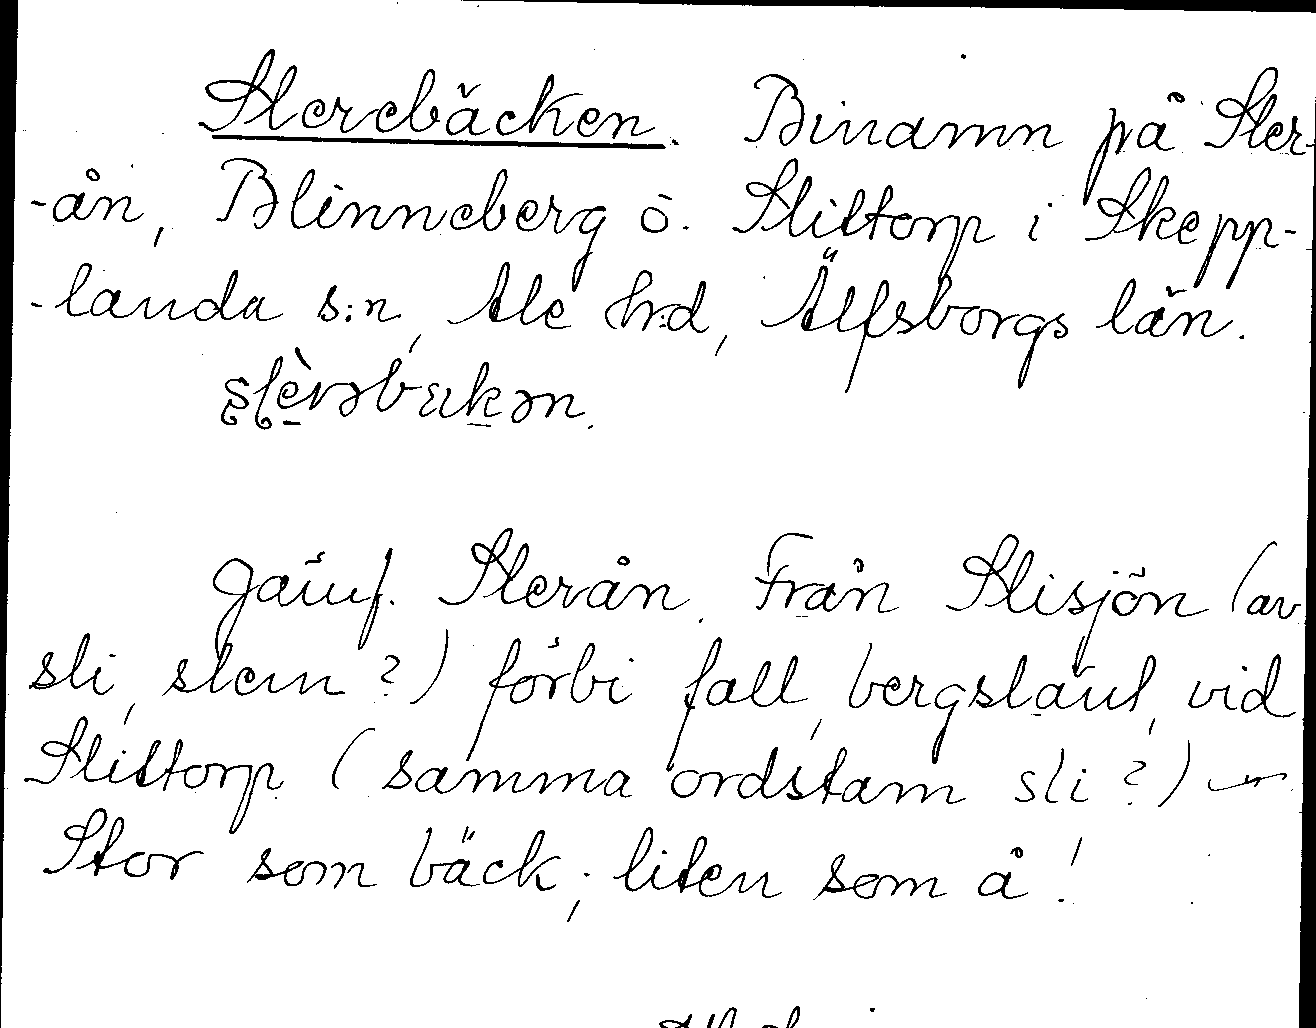 Slerebäcken. Binamn på Sler-
-ån, Blinneberg ö. Slittorp i Skepp-
-landa s:n, Ale hd, Älfsborgs län.
Jämf. Slerån. Från Slisjön (av
sli, slem?) förbi fall, bergslänt, vid
Slittorp (samma ordstam sli?) —
Stor som bäck; liten som å!